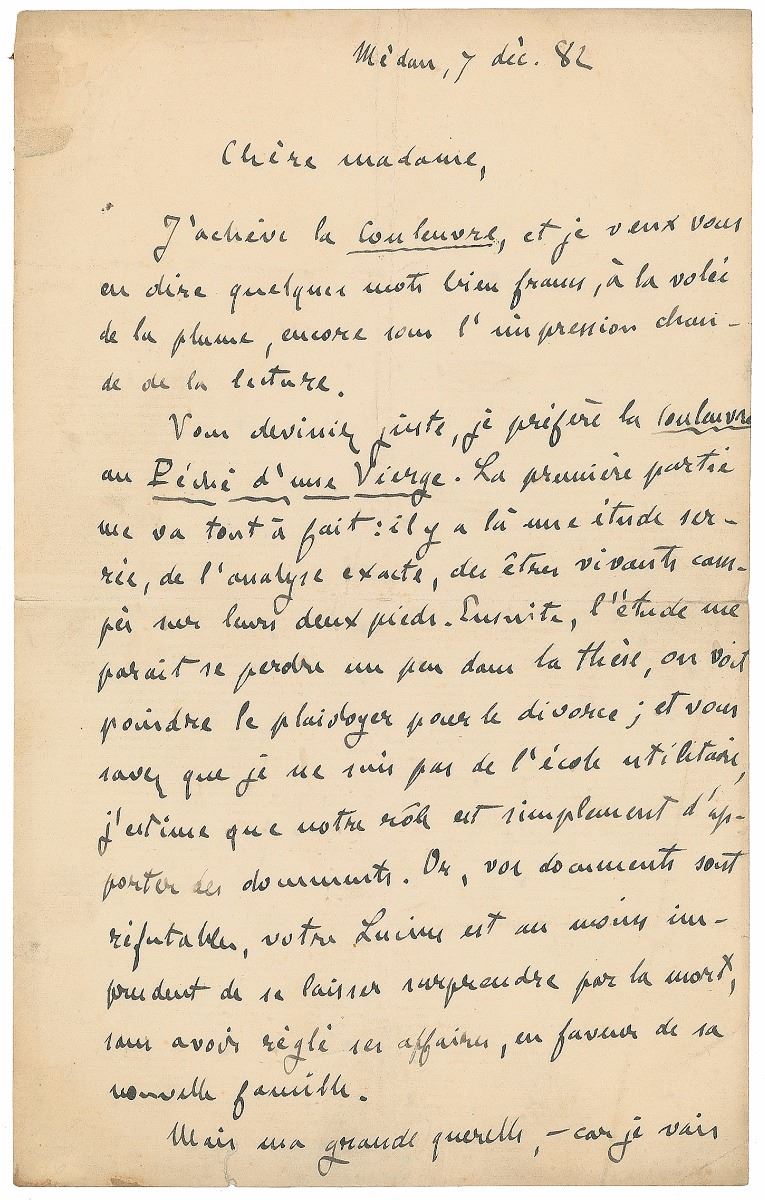 Médan, 7 déc. 82
Chère madame,
J'achève la Couleuvre, et je veux vous
en dire quelques mots bien francs, à la volée
de la plume, encore sous l'impression chau-
de de la lecture.
Vous deviniez juste, je préfère la Couleuvre
au Péché d'une Vierge. La première partie
me va tout à fait : il y a là une étude ser-
rée, de l'analyse exacte, des êtres vivants cam-
pés sur leurs deux pieds. Ensuite, l'étude me
parait se perdre un peu dans la thèse, on voit
poindre le plaidoyer pour le divorce ; et vous
savez que je ne suis pas de l'école utilitaire,
j'estime que notre rôle est simplement d'ap-
porter des documents. Or, vos documents sont
réfutables, votre Lucien est au moins im-
prudent de se laisser surprendre par la mort,
sans avoir réglé ses affaires, en faveur de sa
nouvelle famille.
Mais ma grande querelle, – car je vais